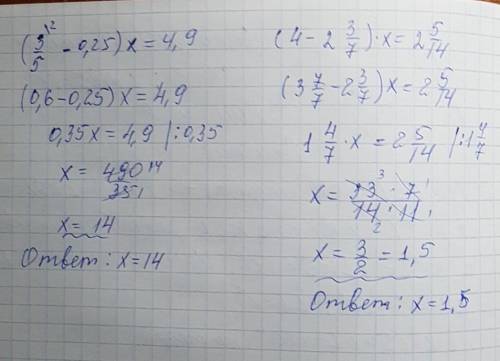 (3/5 \2 - 0,25) x = 4,9
(0,6 - 0,25) x = 4,9
0,35x = 4,9 | :0,35
x = 490 14 / 35 1
x = 14
Ответ: x = 14
(4 - 2 3/7) · x = 2 5/14
(3 7/7 - 2 3/7) x = 2 5/14
1 4/7 · x = 2 5/14 | :1 4/7
x = 33 3 · 7 1 / 14 2 · 11 1
x = 3/2 = 1,5
Ответ: x = 1,5